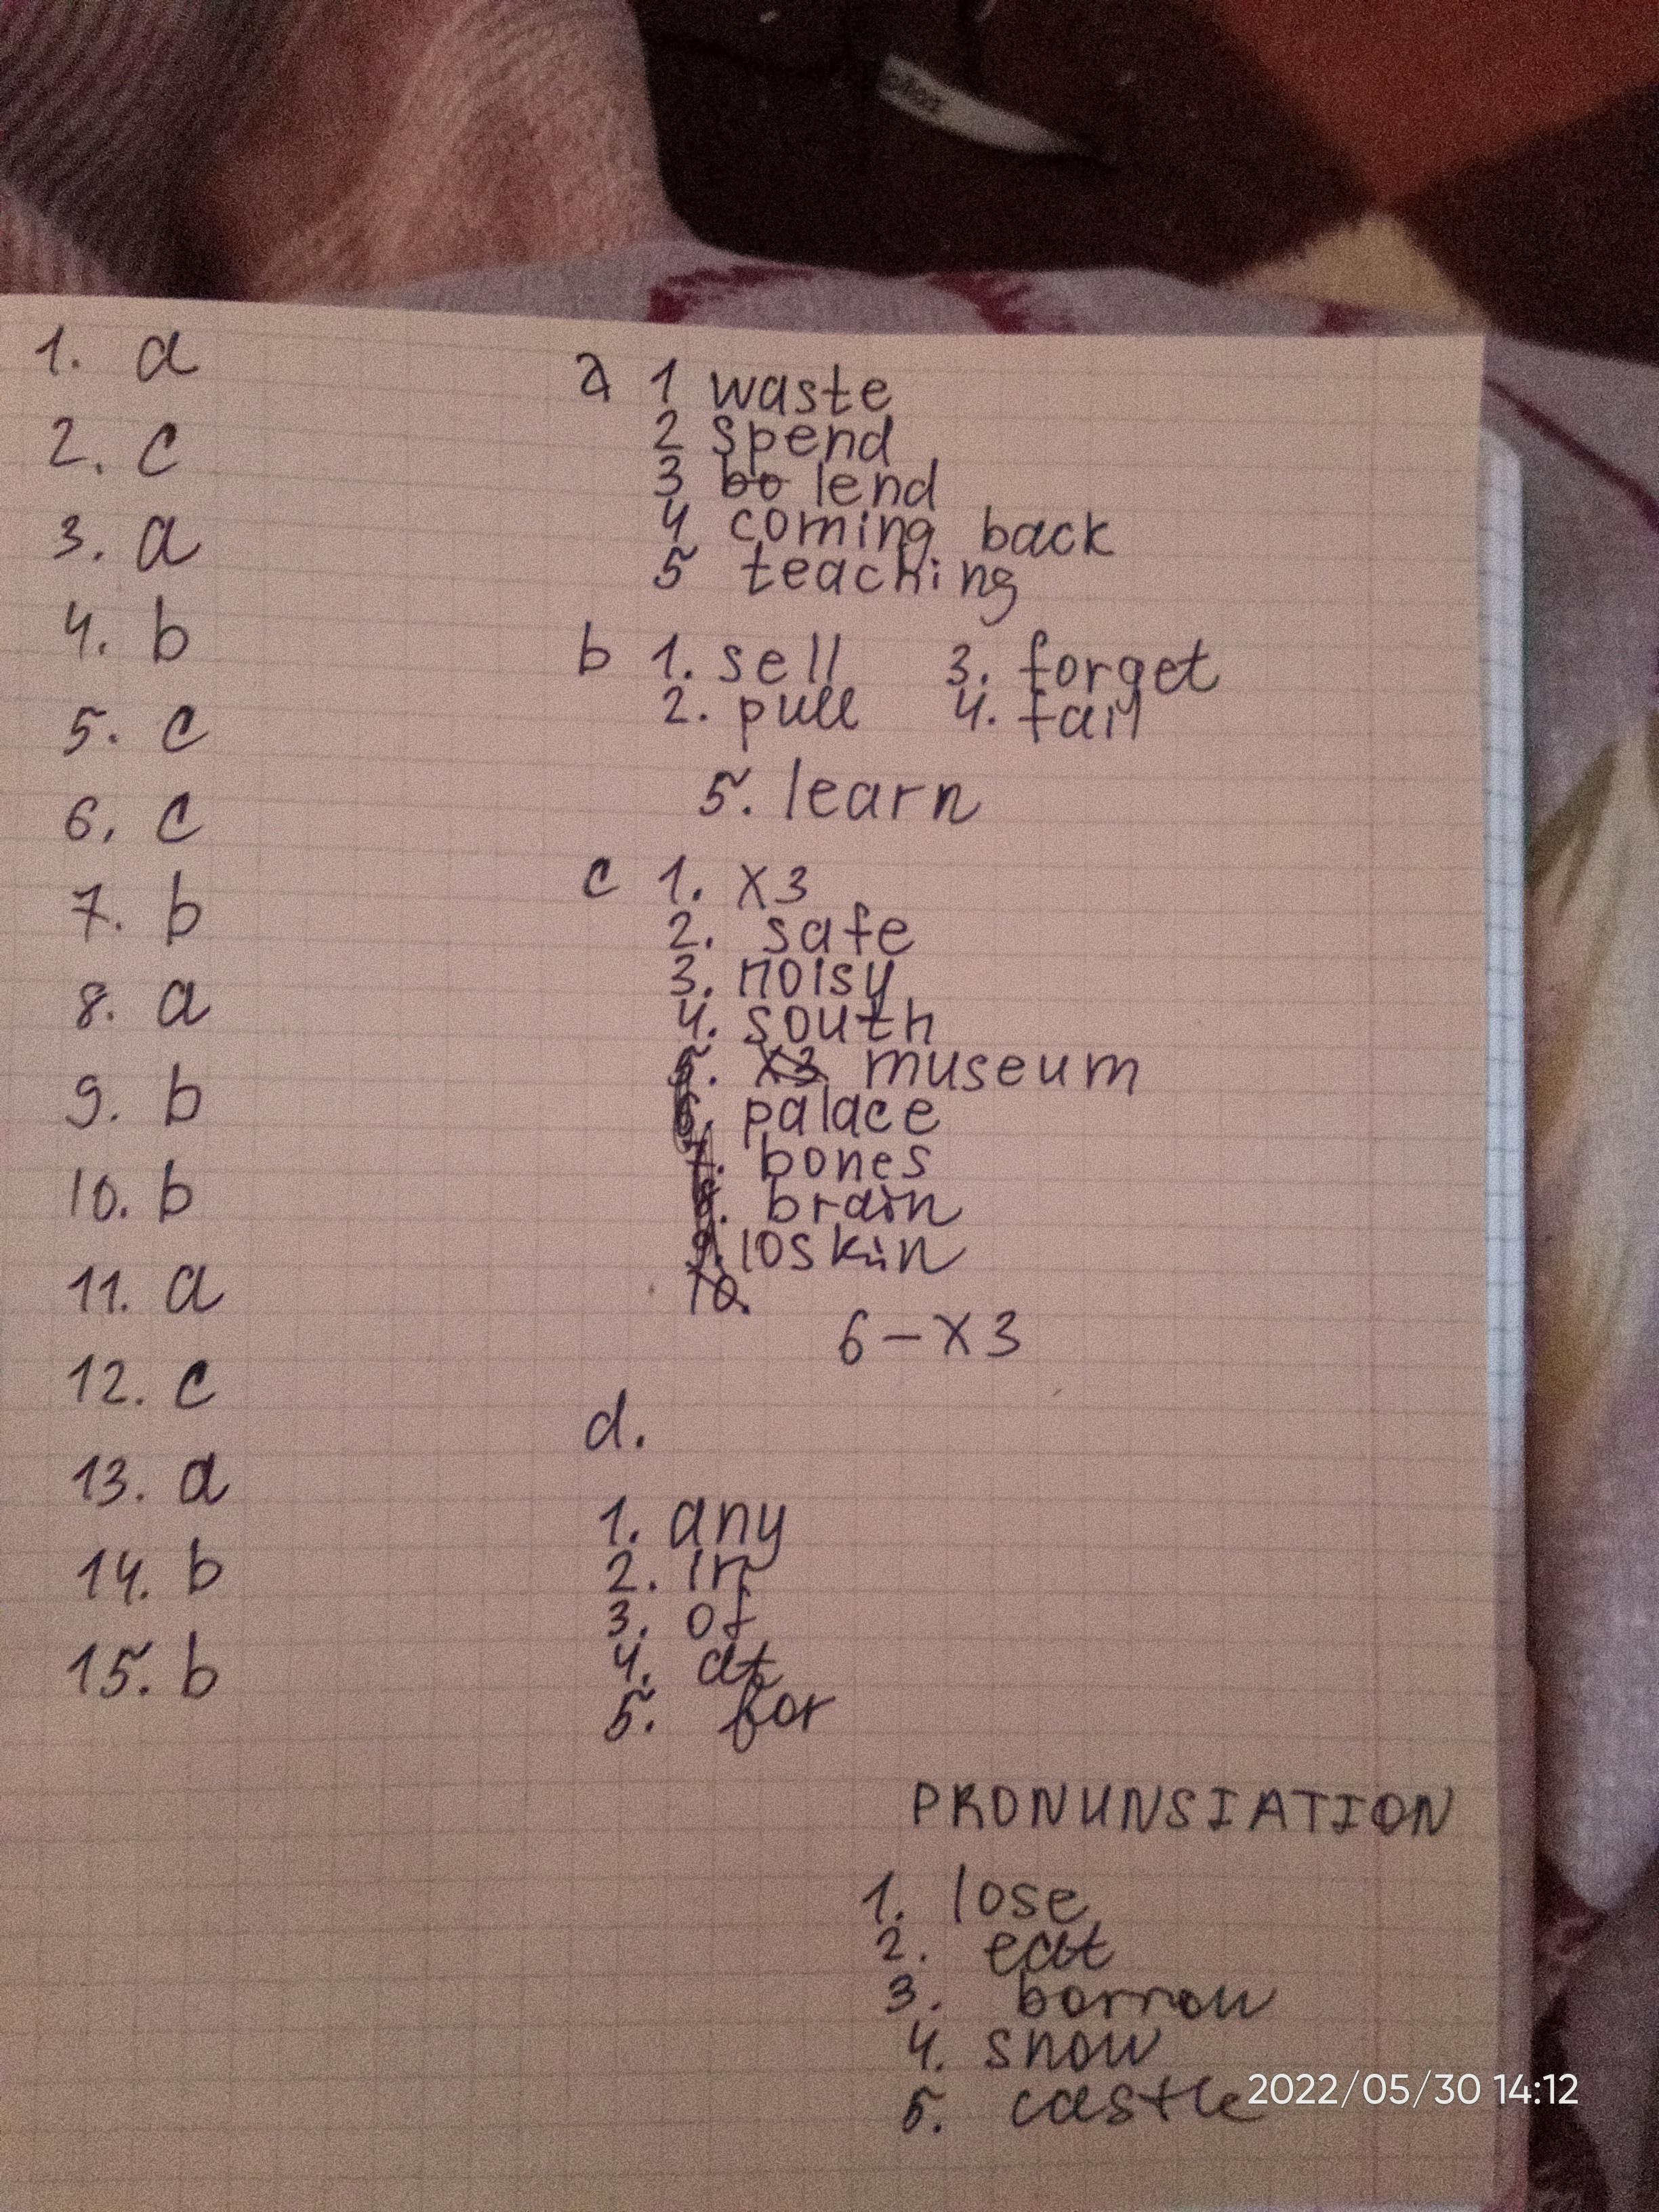 1. a
2. c
3. a
4. b
5. c
6. c
7. b
8. a
9. b
10. b
11. a
12. c
13. a
14. b
15. b
a 1 waste
2 spend
3 bo lend
4 coming back
5 teaching
b 1. sell 3. forget
2. pull 4. fail
5. learn
c 1. X3
2. safe
3. noisy
4. south
5. X3 museum
6. palace
7. bones
8. brain
9. 10 skin
10.
6 – X3
d.
1. any
2. in
3. of
4. at
5. for
PRONUNSIATION
1. lose
2. eat
3. borrow
4. snow
5. castle
2022/05/30 14:12